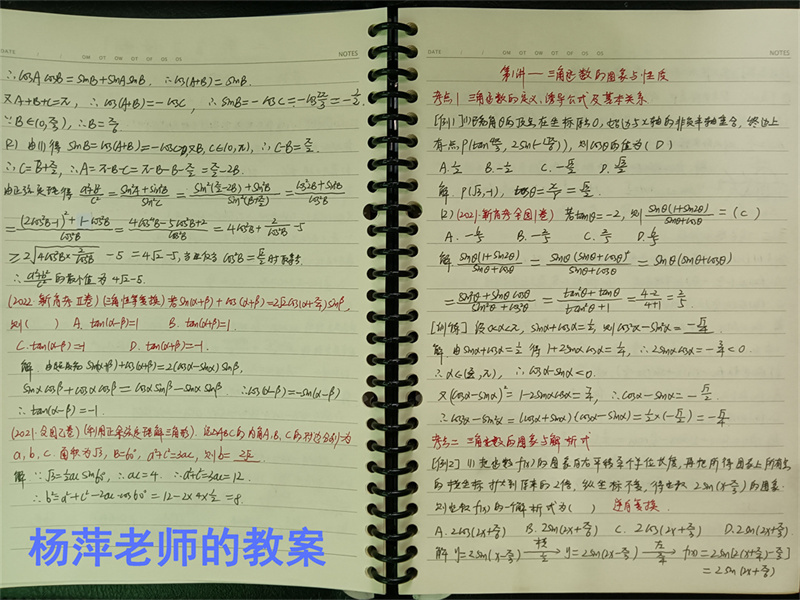 DATE
NOTES
∴cosA cosB = sinB + sinA sinB, ∴cos(A+B) = sinB.
又A+B+C=π, ∴cos(A+B) = -cosC, ∴sinB = -cosC = -cos
∵B∈(0, ), ∴B=π/6
(2) 由(1)得 sinB = cos(A+B) = -cosC
∴A=π-B-C=π-B-B-π/2=π/2-2B.
由正弦定理得 (a²+b²)/c² = (sin²A+sin²B)/sin²C = (cos²2B+sin²B)/cos²B
= ((2cos²B-1)²+1-cos²B)/cos²B = (4cos⁴B-5cos²B+2)/cos²B = 4cos²B + 2/cos²B -5
≥2√(4cos²B×2/cos²B) -5 = 4√2-5, 当且仅当 cos²B=√2/2时取等号
∴(a²+b²)/c²的最小值为4√2-5.
(2022·新高考Ⅱ卷)(三角恒等变换)若sin(α+β)+cos(α+β)=2√2cos(α+π/4)sinβ,
则( ) A. tan(α-β)=1 B. tan(α+β)=1.
C. tan(α-β)=-1 D. tan(α+β)=-1.
解 由题意知 sin(α+β)+cos(α+β)=2(cosα-sinα)sinβ,
sinαcosβ+cosαcosβ=cosαsinβ-sinαsinβ. ∴cos(α-β)=-sin(α-β)
∴tan(α-β)=-1.
(2021·全国乙卷)(利用正余弦定理解三角形) 记△ABC的内角A、B、C的对边分别为
a、b、c. 面积为√3, B=60°, a²+c²=3ac, 则b= 2√2
解 ∵√3=½ac sin60°, ∴ac=4. ∴a²+c²=3ac=12.
∴b²=a²+c²-2ac·cos60°=12-2×4×½=8.
杨萍老师的教案
DATE
NOTES
第1讲——三角函数的图象与性质
考点1 三角函数的定义、诱导公式及基本关系
[例1](1)已知角θ的顶点在坐标原点O, 始边与x轴的非负半轴重合, 终边上
有一点P( ), 则cosθ的值为(D)
A. ½ B. -½ C. -√3/2 D. √3/2
解 P(√3,-1), cosθ=x/r=√3/2.
(2)(2021·新高考全国Ⅰ卷) 若tanθ=-2, 则sinθ(1+sin2θ)/(sinθ+cosθ)=(C)
A. -6/5 B. -2/5 C. 2/5 D. 6/5
解 sinθ(1+sin2θ)/(sinθ+cosθ) = sinθ(sinθ+cosθ)²/(sinθ+cosθ) = sinθ(sinθ+cosθ)
= (sin²θ+sinθcosθ)/(sin²θ+cos²θ) = (tan²θ+tanθ)/(tan²θ+1) = (4-2)/(4+1) = 2/5
[训练] 设0<α<π, sinα+cosα=½, 则cos²α-sin²α=-√7/4
解 由sinα+cosα=½ 得 1+2sinαcosα=¼, ∴2sinαcosα=-¾<0.
∴α∈(π/2,π), ∴cosα-sinα<0.
又(cosα-sinα)²=1-2sinαcosα=7/4, ∴cosα-sinα=-√7/2
∴cos²α-sin²α=(cosα+sinα)(cosα-sinα)=½×(-√7/2)=-√7/4
考点二 三角函数的图象与解析式
[例2] (1) 把函数f(x)的图象向左平移 个单位长度, 再把所得图象上所有点
的横坐标扩大到原来的2倍, 纵坐标不变, 得函数2sin(x-π/3)的图象.
则函数f(x)的一个解析式为( ) 逆向变换.
A. 2cos(2x+π/6) B. 2sin(2x+π/6) C. 2cos(2x+π/3) D. 2sin(2x+π/3)